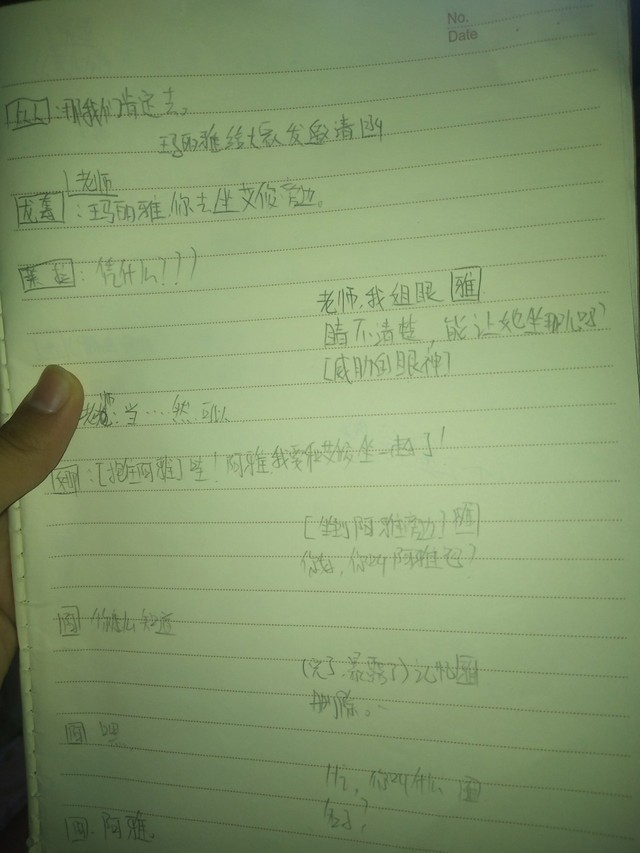 No.
Date
：那我们肯定去。
玛丽雅给大家发邀请函
老师
：玛丽雅，你去坐艾俟旁边。
：凭什么？？？
老师，我组眼 雅
睛不清楚，能让她坐那儿吗？
[威胁的眼神]
老师：当…然，可以
：[抱住阿雅] 阿雅，我要和艾俟坐一起了！
[坐到阿雅旁边]
你好，你叫阿雅吧？
你怎么知道
（完了，暴露了）记忆
删除。
嗯
Hi，你叫什么
名字？
阿雅。